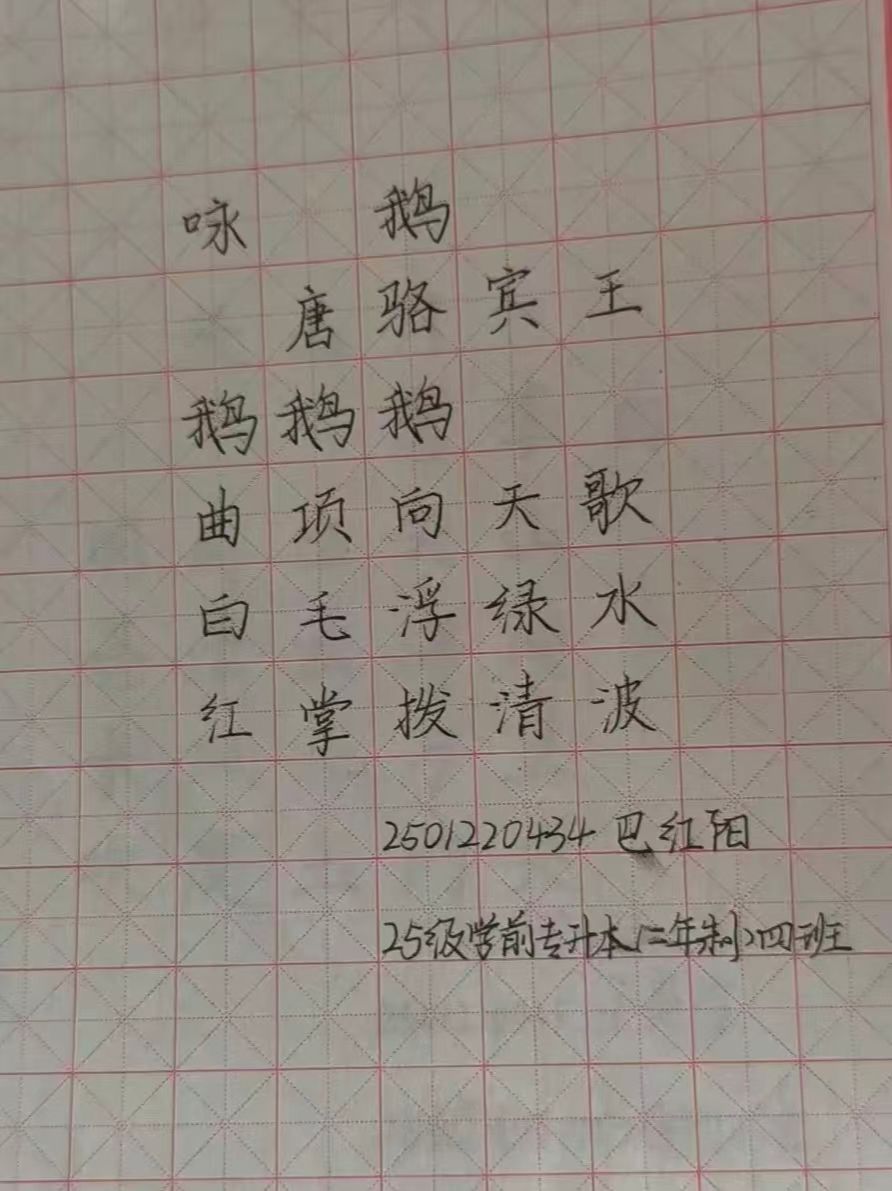 咏 鹅
唐 骆 宾 王
鹅 鹅 鹅
曲 项 向 天 歌
白 毛 浮 绿 水
红 掌 拨 清 波
2501220434 巴红阳
25级学前专升本(二年制)四班